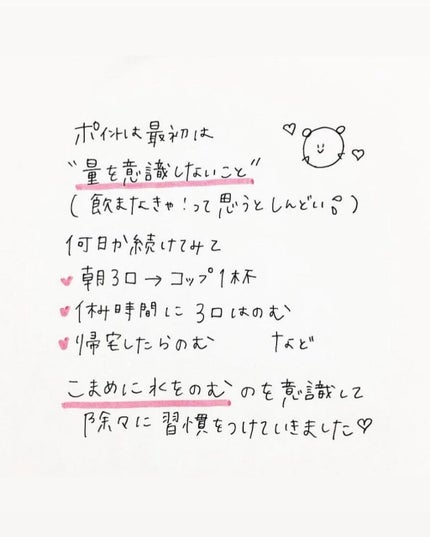 ポイントは最初は
"量を意識しないこと"
(飲まなきゃ！って思うとしんどい)
何日か続けてみて
朝3口→コップ1杯
休み時間に3口はのむ
帰宅したらのむ など
こまめに水をのむのを意識して
徐々に習慣をつけていきました♡